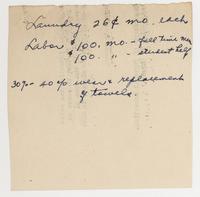 Laundry 26¢ mo. each
Labor $100. mo. - full time men
$100. " - student help
30% - 40% wear & replacement
of towels.